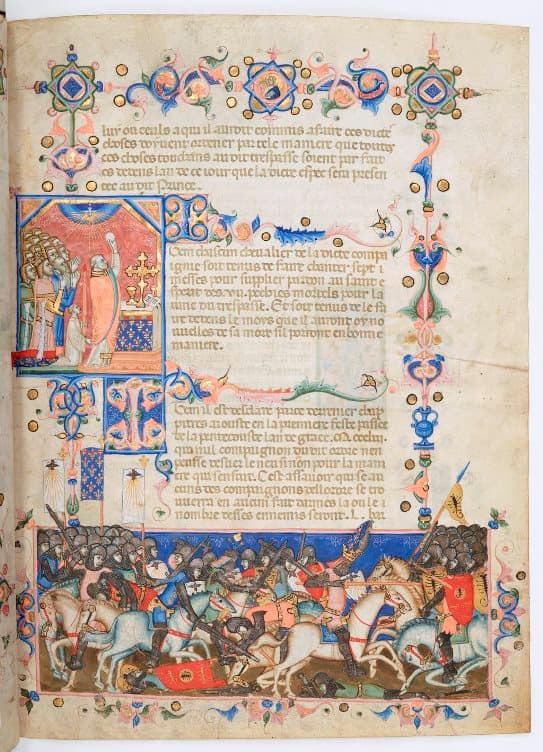 luy ou ceuls a qui il auroit commis a faire ces dicte
choses doyvent ordener par tele maniere que toutes
ces choses touchans au dit trespasse soient par fait
es dedens lan de ce iour que la dicte espee sera presen
tee au dit Prince.
Item chascun chevalier de la dicte compa
ignie soit tenus de faire chanter sept
messes pour supplier pardon au saint e
sperit des .vii. pechies mortels pour la
lame du trespasse. Et soit tenus de le fa
ire dedens le moys que il auront oy no
uelles de sa mort sil porront en bonne
maniere.
Item il est desclaire par ce derrenier chap
itres aiouste en la premiere feste passee
de la pentecouste lan de grace
que nul compaignon du dit ordre nen
puisse deslier le neu sinon pour la mani
ere qui sensuit. Cest assavoir que se au
cuns des compaignons de lordre se tro
uuera en aucun fait darmes la ou le
nombre de ses ennemis seront .L. bar